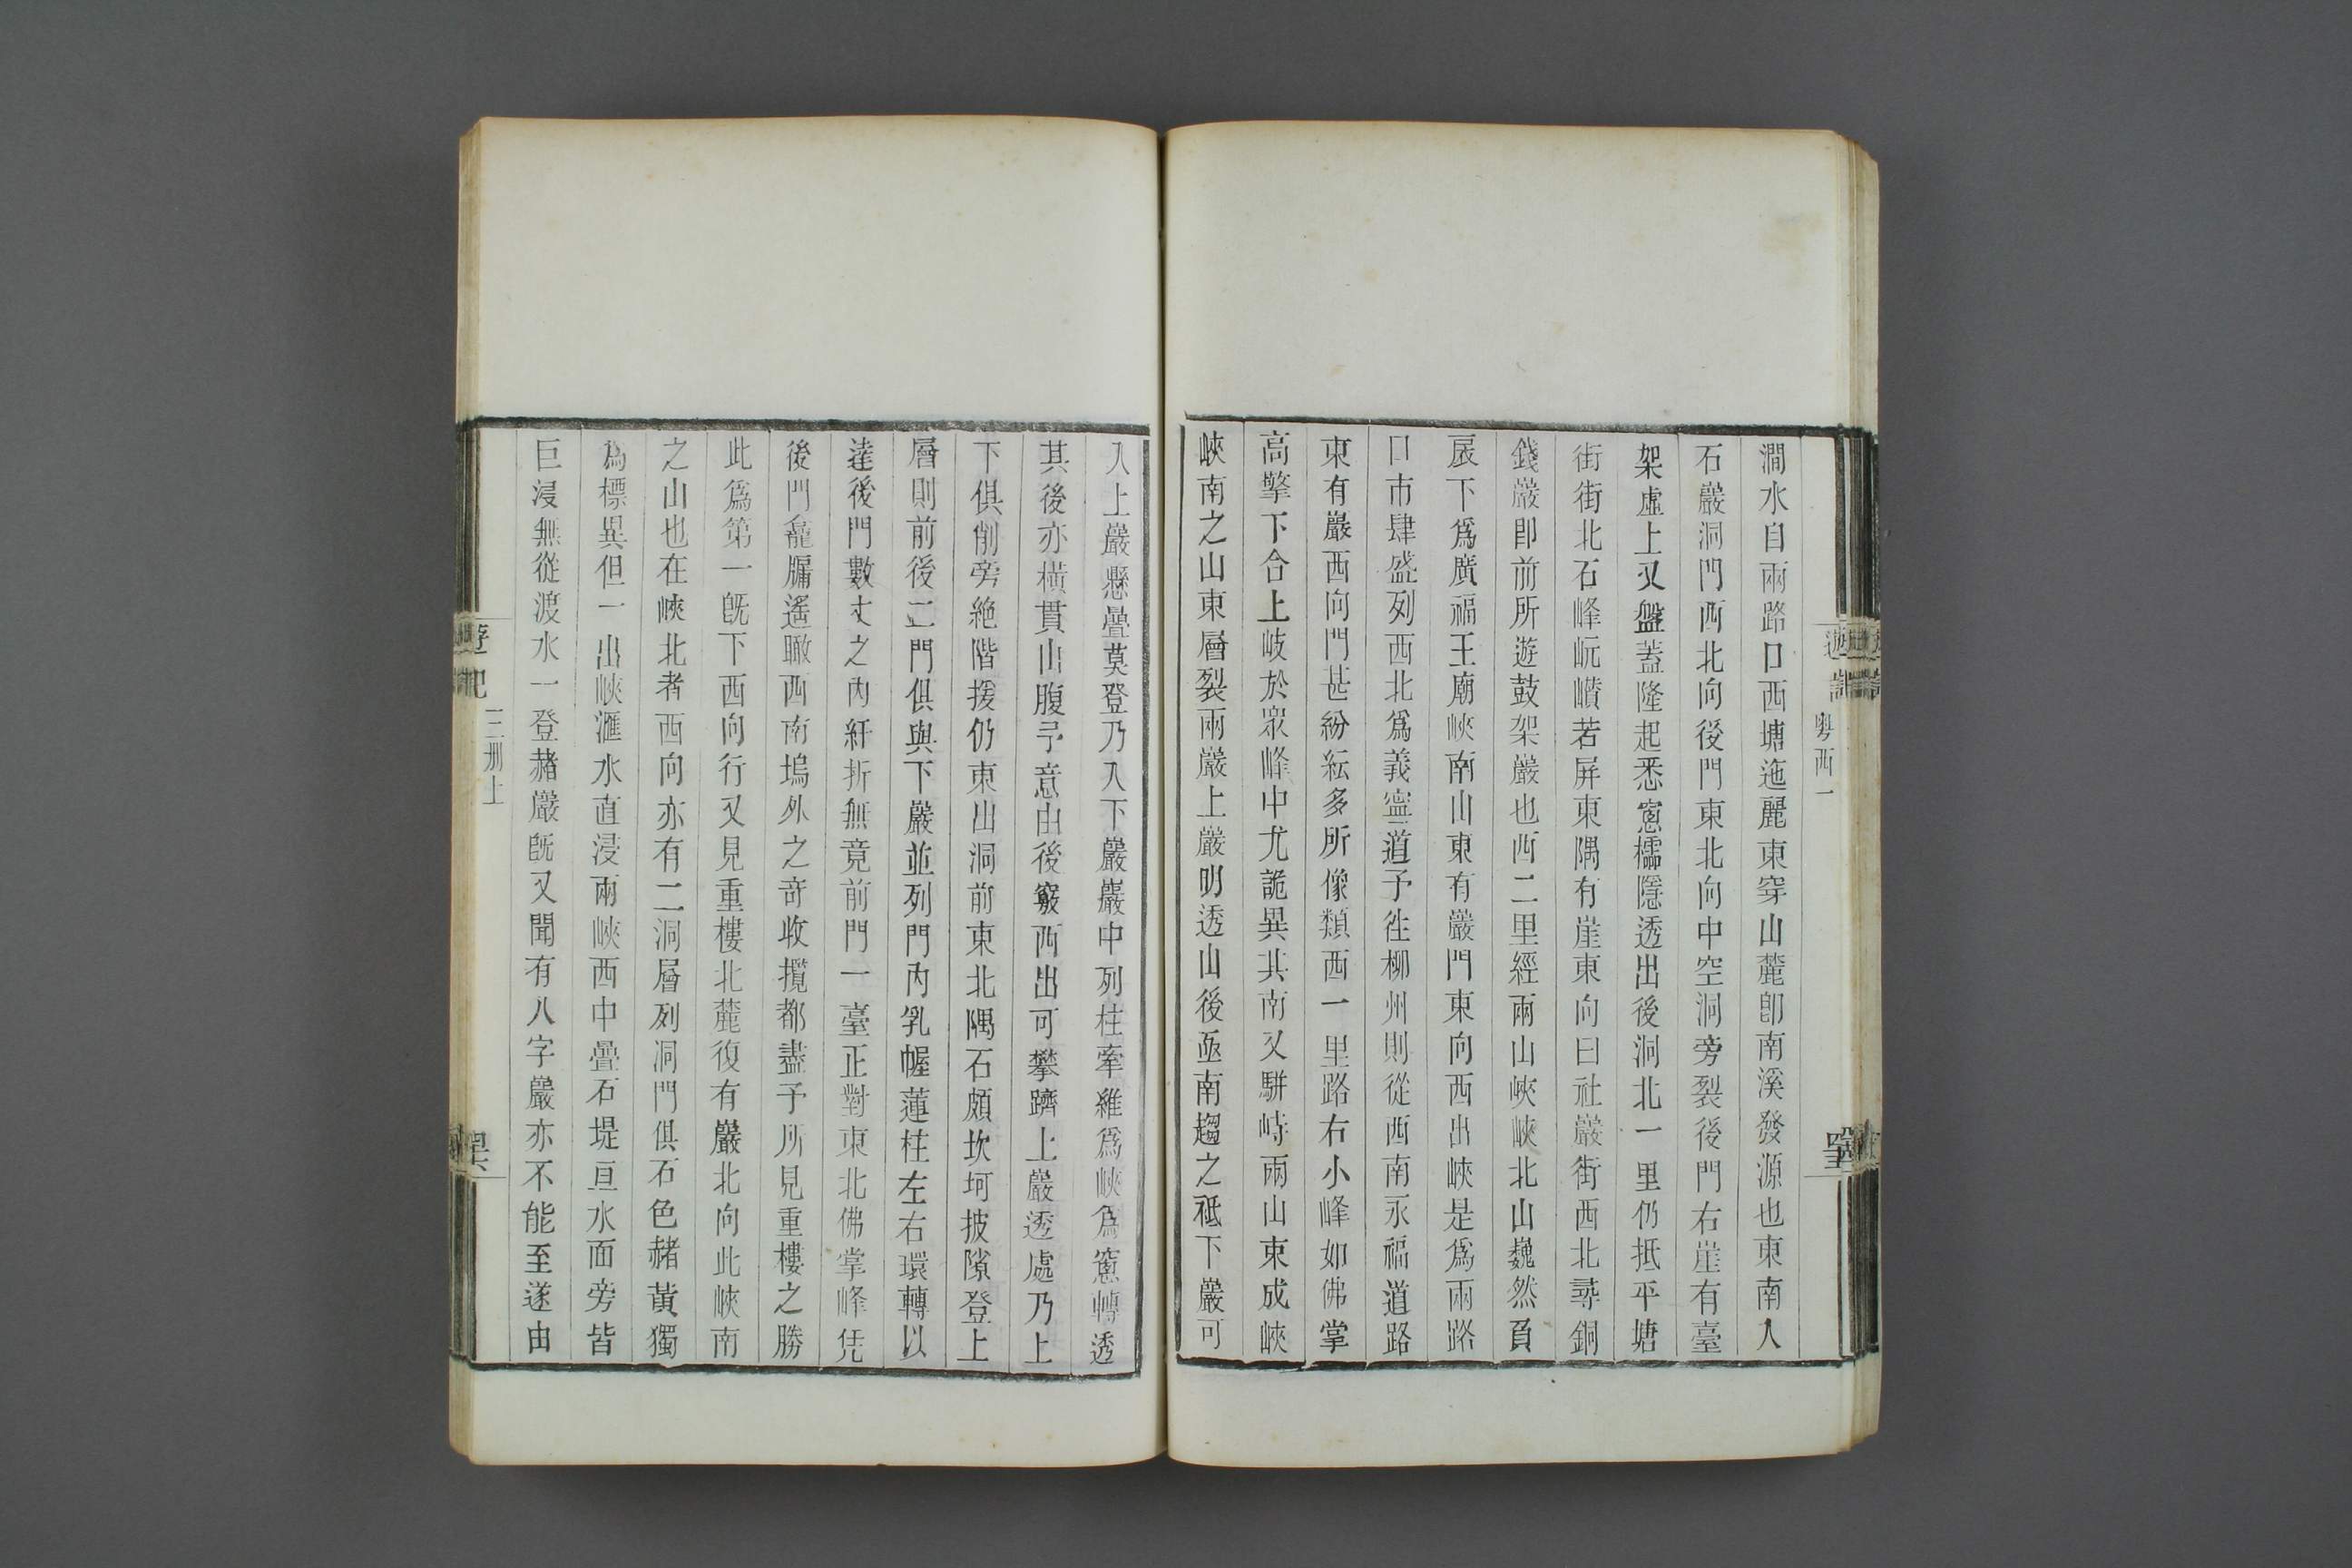 粤西一
澗水自兩路口西塘迤麗東穿山麓卽南溪發源也東南入
石巖洞門西北向後門東北向中空洞旁裂後門右崖有臺
架虛上又盤蓋隆起悉窻櫺隱透出後洞北一里仍抵平塘
街街北石峰岏巑若屏東隅有崖東向曰社巖街西北尋銅
錢巖卽前所遊鼓架巖也西二里經兩山峽峽北山巍然負
扆下爲廣福王廟峽南山東有巖門東向西出峽是爲兩路
口市肆盛列西北爲義寧道予徃柳州則從西南永福道路
東有巖西向門甚紛紜多所像類西一里路右小峰如佛掌
高擎下合上岐於衆峰中尤詭異其南又駢峙兩山東成峽
峽南之山東層裂兩巖上巖明透山後亟南趨之祗下巖可
入上巖懸疊莫登乃入下巖巖中列柱牽維爲峽爲窻轉透
其後亦橫貫山腹予意由後竅西出可攀躋上巖透處乃上
下俱削旁絶階援仍東出洞前東北隅石頗坎坷披隙登上
層則前後二門俱與下巖並列門內乳幄蓮柱左右環轉以
達後門數丈之內紆折無竟前門一臺正對東北佛掌峰凭
後門龕牖遙瞰西南塢外之奇收攬都盡予所見重樓之勝
此爲第一旣下西向行又見重樓北麓復有巖北向此峽南
之山也在峽北者西向亦有二洞層列洞門俱石色赭黃獨
爲標異但一出峽滙水直浸兩峽西中疊石堤亘水面旁皆
巨浸無從渡水一登赭巖旣又聞有八字巖亦不能至遂由
遊記
三冊上